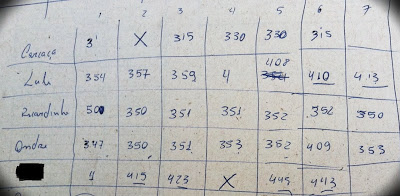 1 2 3 4 5 6 7
3' X 315 330 330 315
Lula 354 357 359 4 408 410 413
Ricardinho 350 351 351 352 352 350
347 350 351 353 352 409 353
1 415 423 X 445 443